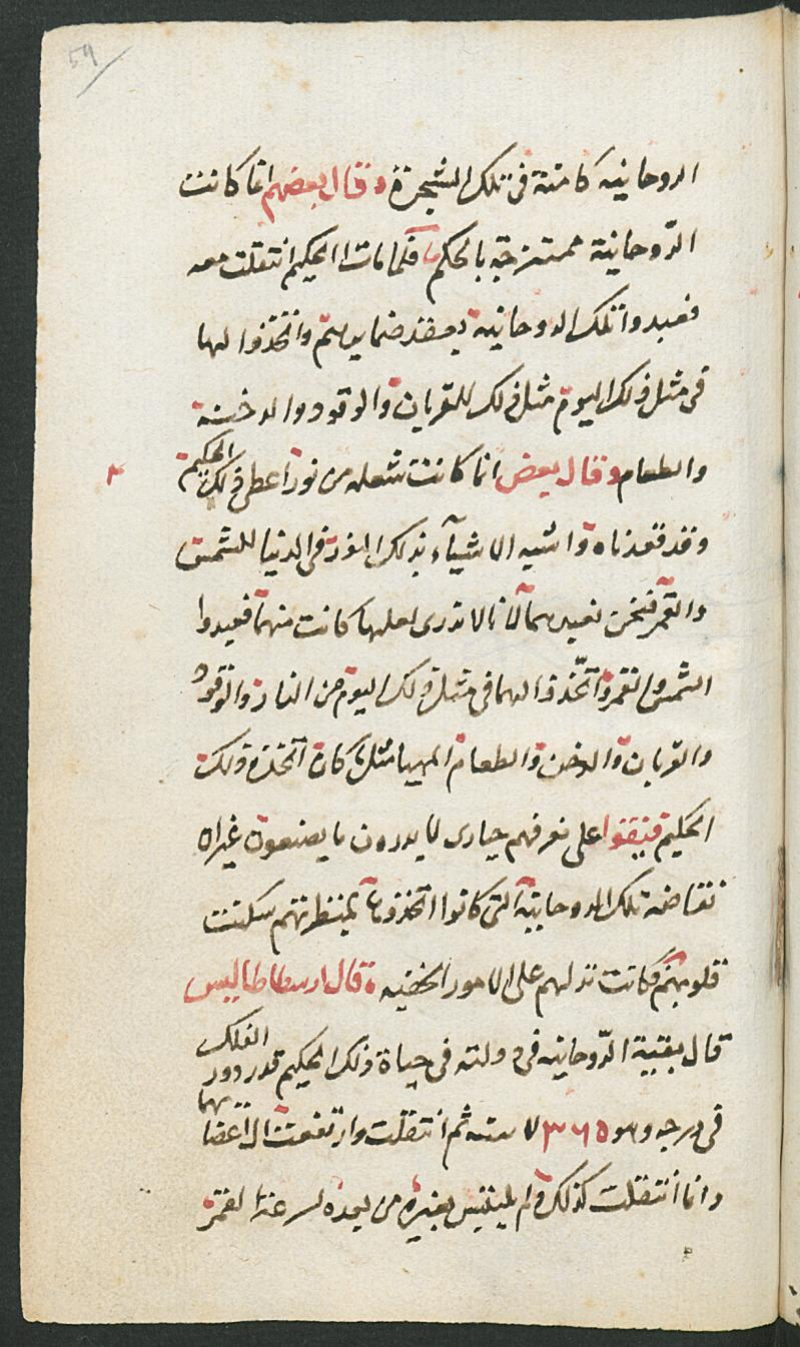 59
الروحانيه كامنة فى تلك الشجرة وقال بعضهم انما كانت
الرّوحانية ممتزجة بالحكم فلما مات الحكيم انتقلت معه
فعبدوا تلك الروحانيه بعقد ضمايرهم واتخذوا لها
فى مثل ذلك اليوم مثل ذلك القربان والوقود والدخنة
والطعام وقال بعض انما كانت شعله من نور اعطى ذلك الحكيم
وقد فقدناه واشبه الاشيآء بذلك النور فى الدنيا الشمس
والقمر فنحن نعبدهما لانا لا ندرى لعلها كانت منهما فعبدوا
الشمس والقمر واتخذوا لهما فى مثل ذلك اليوم من النار والوقود
والقربان والدخن والطعام المهيا مثل ما كان اتخذه ذلك
الحكيم فبقوا على تفرقهم حيارى لا يدرون ما يصنعون غير ان
تلك الروحانية التى كانوا اتخذوها
قلوبهم فكانت تدلهم على الامور الخفيه وقال ارسطاطاليس
قال بقية الرّوحانيه فى دولته فى حياة ذلك الحكيم قدر دور الفلك
فى درجه وهو ٣٦٥ سنه ثم انتقلت وارتفعت
وانما انتقلت كذلك ولم من بعده لسرعة القمر